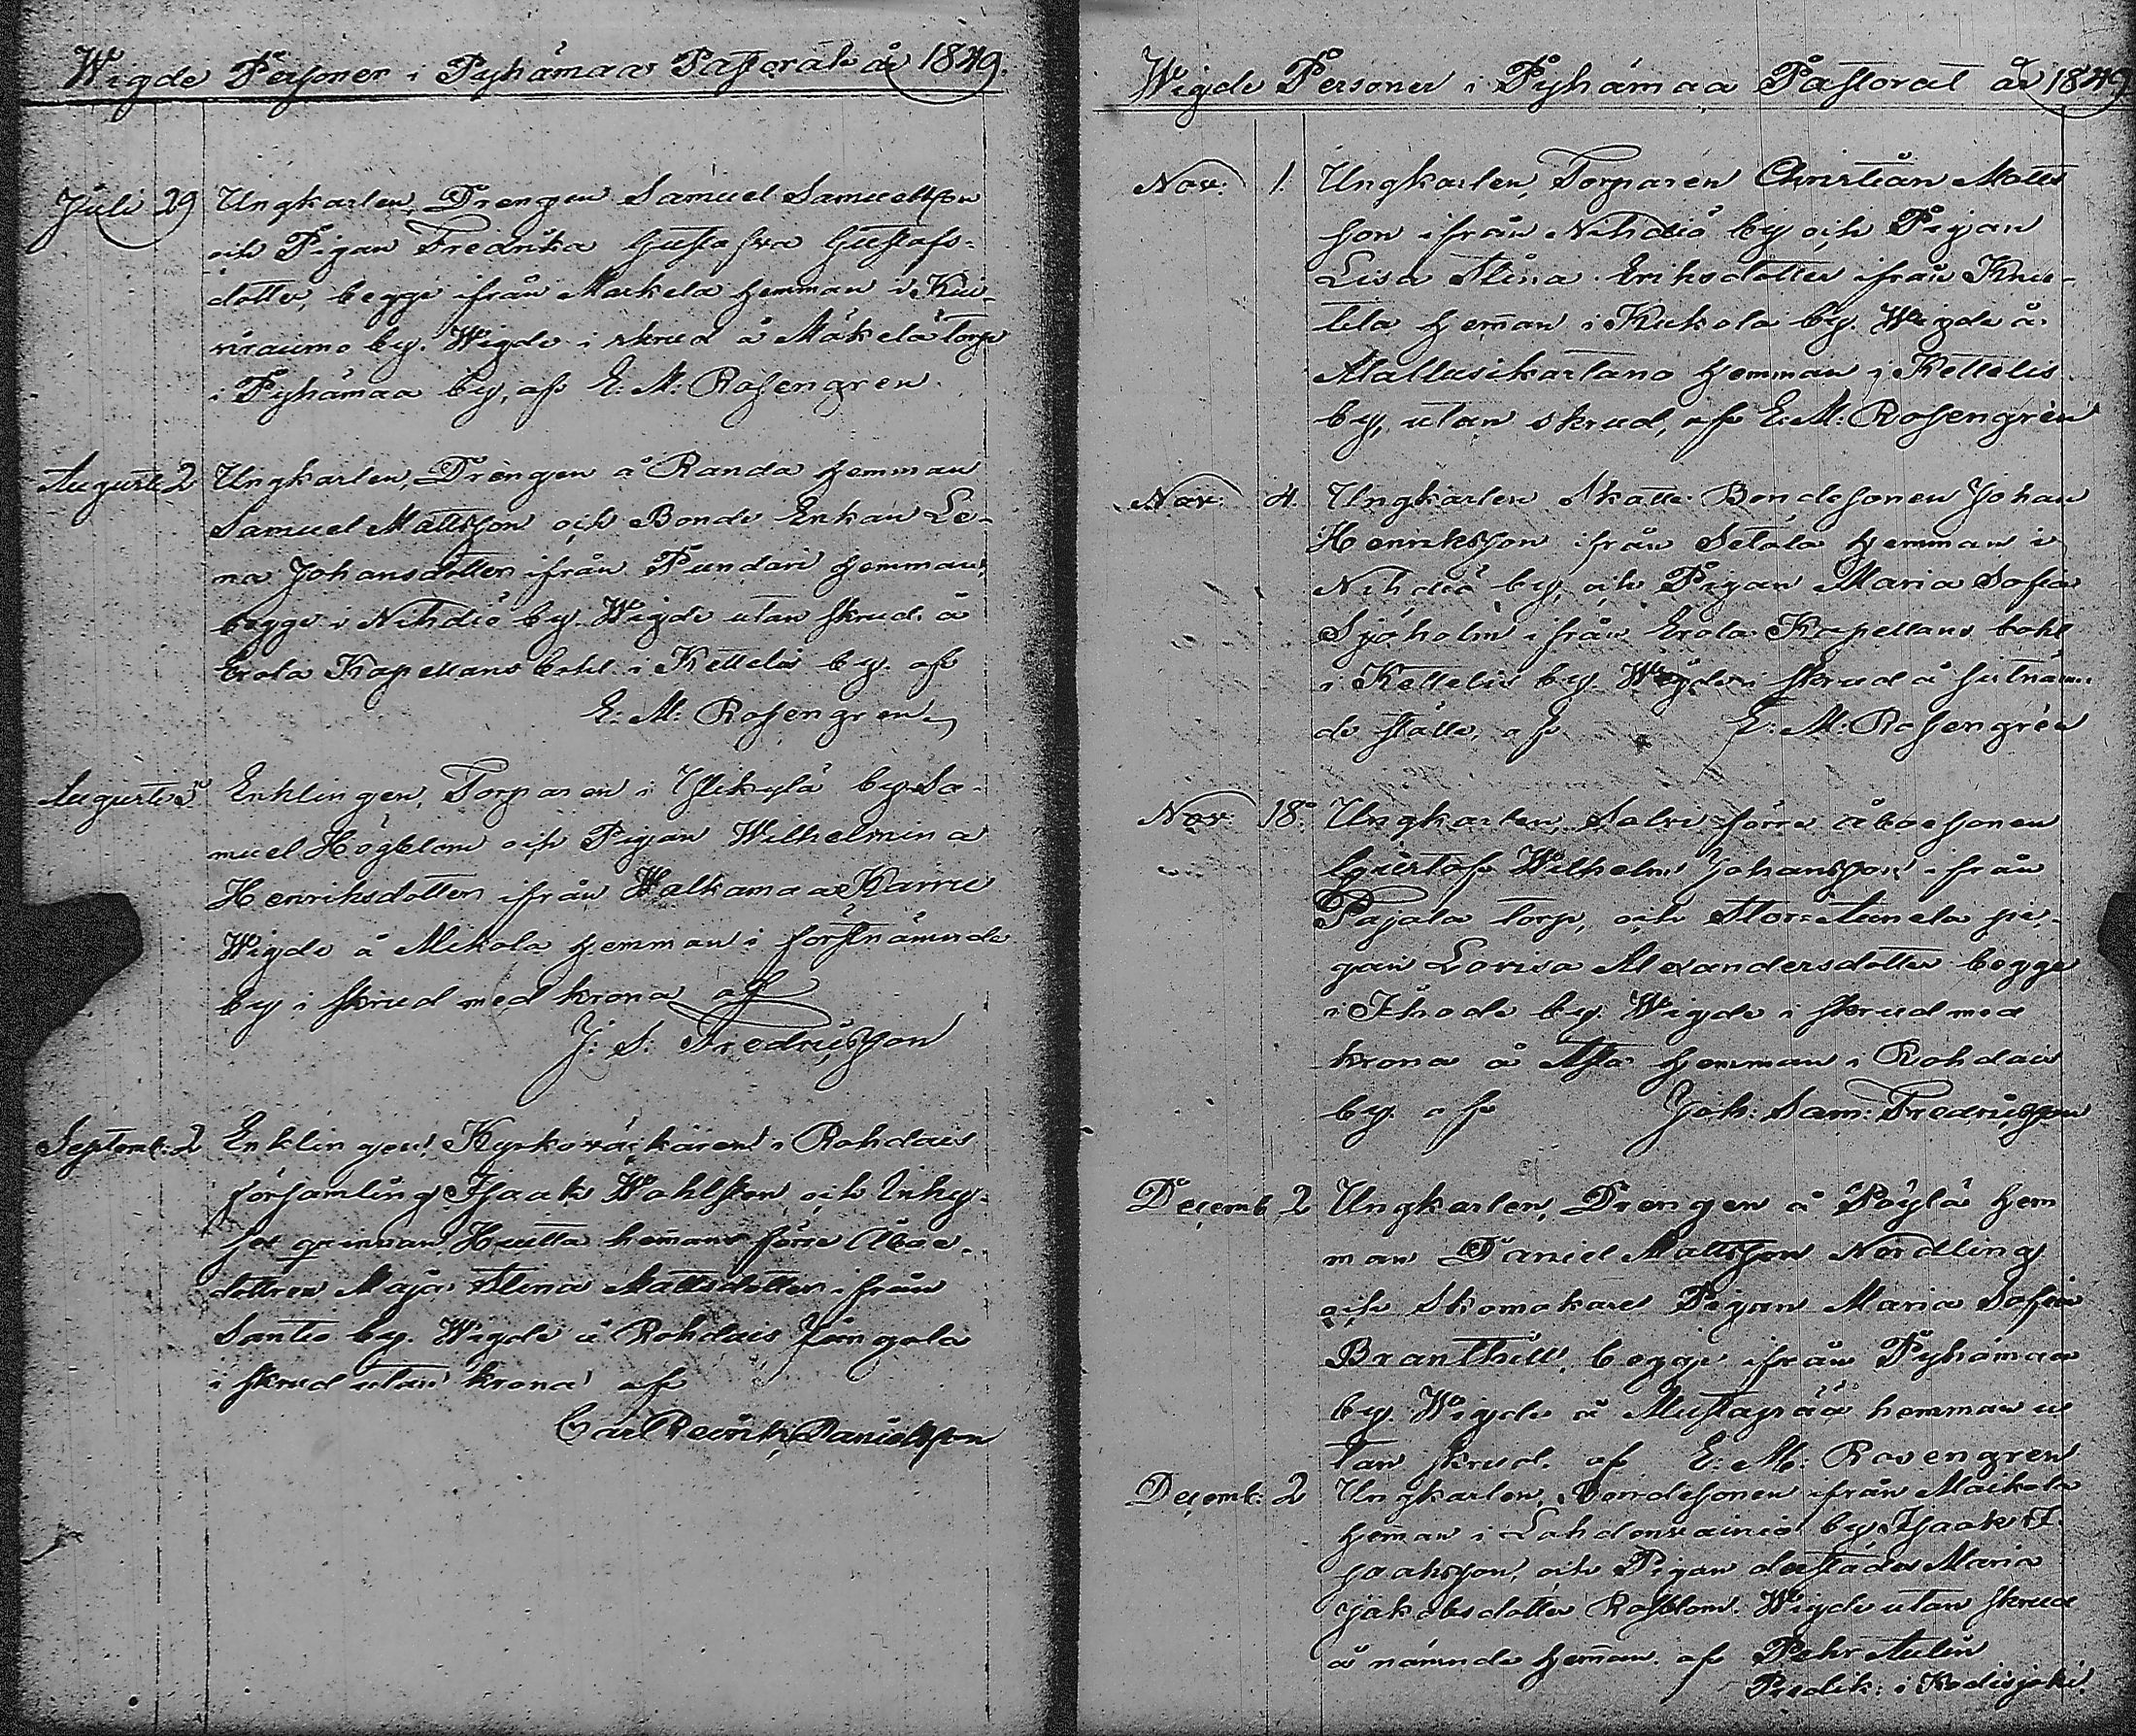 Wigde Personer i Pyhämaa Pastorat år 1849.
Juli 29 Ungkarlen, Drengen Samuel Samuelsson
och Pigan Fredrika Gustafva Gustafs-
dotter, begge ifrån Markela Hemman i Kui-
viraumo by. Wigde i skrud å Mäkelä torp
i Pyhämaa by, af E. M: Rosengren.
Augusti 2 Ungkarlen, Drengen å Randa Hemman
Samuel Mattsson och Bonde Enkan Le-
na Johansdotter ifrån Pundari Hemman,
begge i Nihdiö by. Wigde utan skrud å
Erola Kapellans bohl i Kettelis by. af
E: M: Rosengren
Augusti 5 Enklingen, Torparen i Ylikylä by Sa-
muel Högblom och Pigan Wilhelmina
Henriksdotter ifrån Walkamaa Karru
Wigde å Mikola Hemman i förstnämnde
by i skrud med krona af
J: S: Fredriksson
Septemb. 2 Enklingen, Kyrkoväktaren i Rohdais
församling Isaak Wahlsten och Inhy-
ses qvinnan Huitta hemans förre Åboe-
dottren Maja Stina Mattsdotter ifrån
Santio by. Wigde å Rohdais
i skrud utan krona af
Carl Danielsson
Wigde Personer i Pyhämaa Pastorat år 1849
Nov: 1. Ungkarlen, Torparen Christian Matts
son ifrån Nihdiö by och Pigan
Lisa Stina Eriksdotter ifrån Knu-
tila Heman i Kukola by. Wigde å
Mallusikartano Hemman i Kettelis
by, utan skrud, af E. M: Rosengrén
Nov: 4. Ungkarlen Skatte Bondesonen Johan
Henriksson ifrån Setälä Hemman i
Nihdiö by, och Pigan Maria Sofia
Sjöholm ifrån Erola Kapellans bohl
i Kettelis by. Wigde i skrud å sistnämn-
de ställe, af E: M: Rosengrén
Nov: 18. Ungkarlen, Salvi förre åboesonen
Gustaf Wilhelm Johansson ifrån
Pajala torp, och Stor Anela pi-
gan Lovisa Alexandersdotter begge
i Ihode by. Wigde i skrud med
krona å Hemman i Rohdais
by. af Joh: Sam: Fredriksson
Decemb 2 Ungkarlen, Drengen å Päylä Hem
man Daniel Mattsson Nordling
och Skomakare Pigan Maria Sofia
Branthill, begge ifrån Pyhämaa
by. Wigde å Mustapää hemman u
tan skrud. af E: M: Rosengren
Decemb. 2 Ungkarlen, Bondesonen ifrån Maikola
Heman i Lahdenvainio by Isaak I-
saaksson, och Pigan derstädes Maria
Jakobsdotter Rosblom. Wigde utan skrud
å nämnde Heman. af Pehr Aulin
Predik: i Kodisjoki.